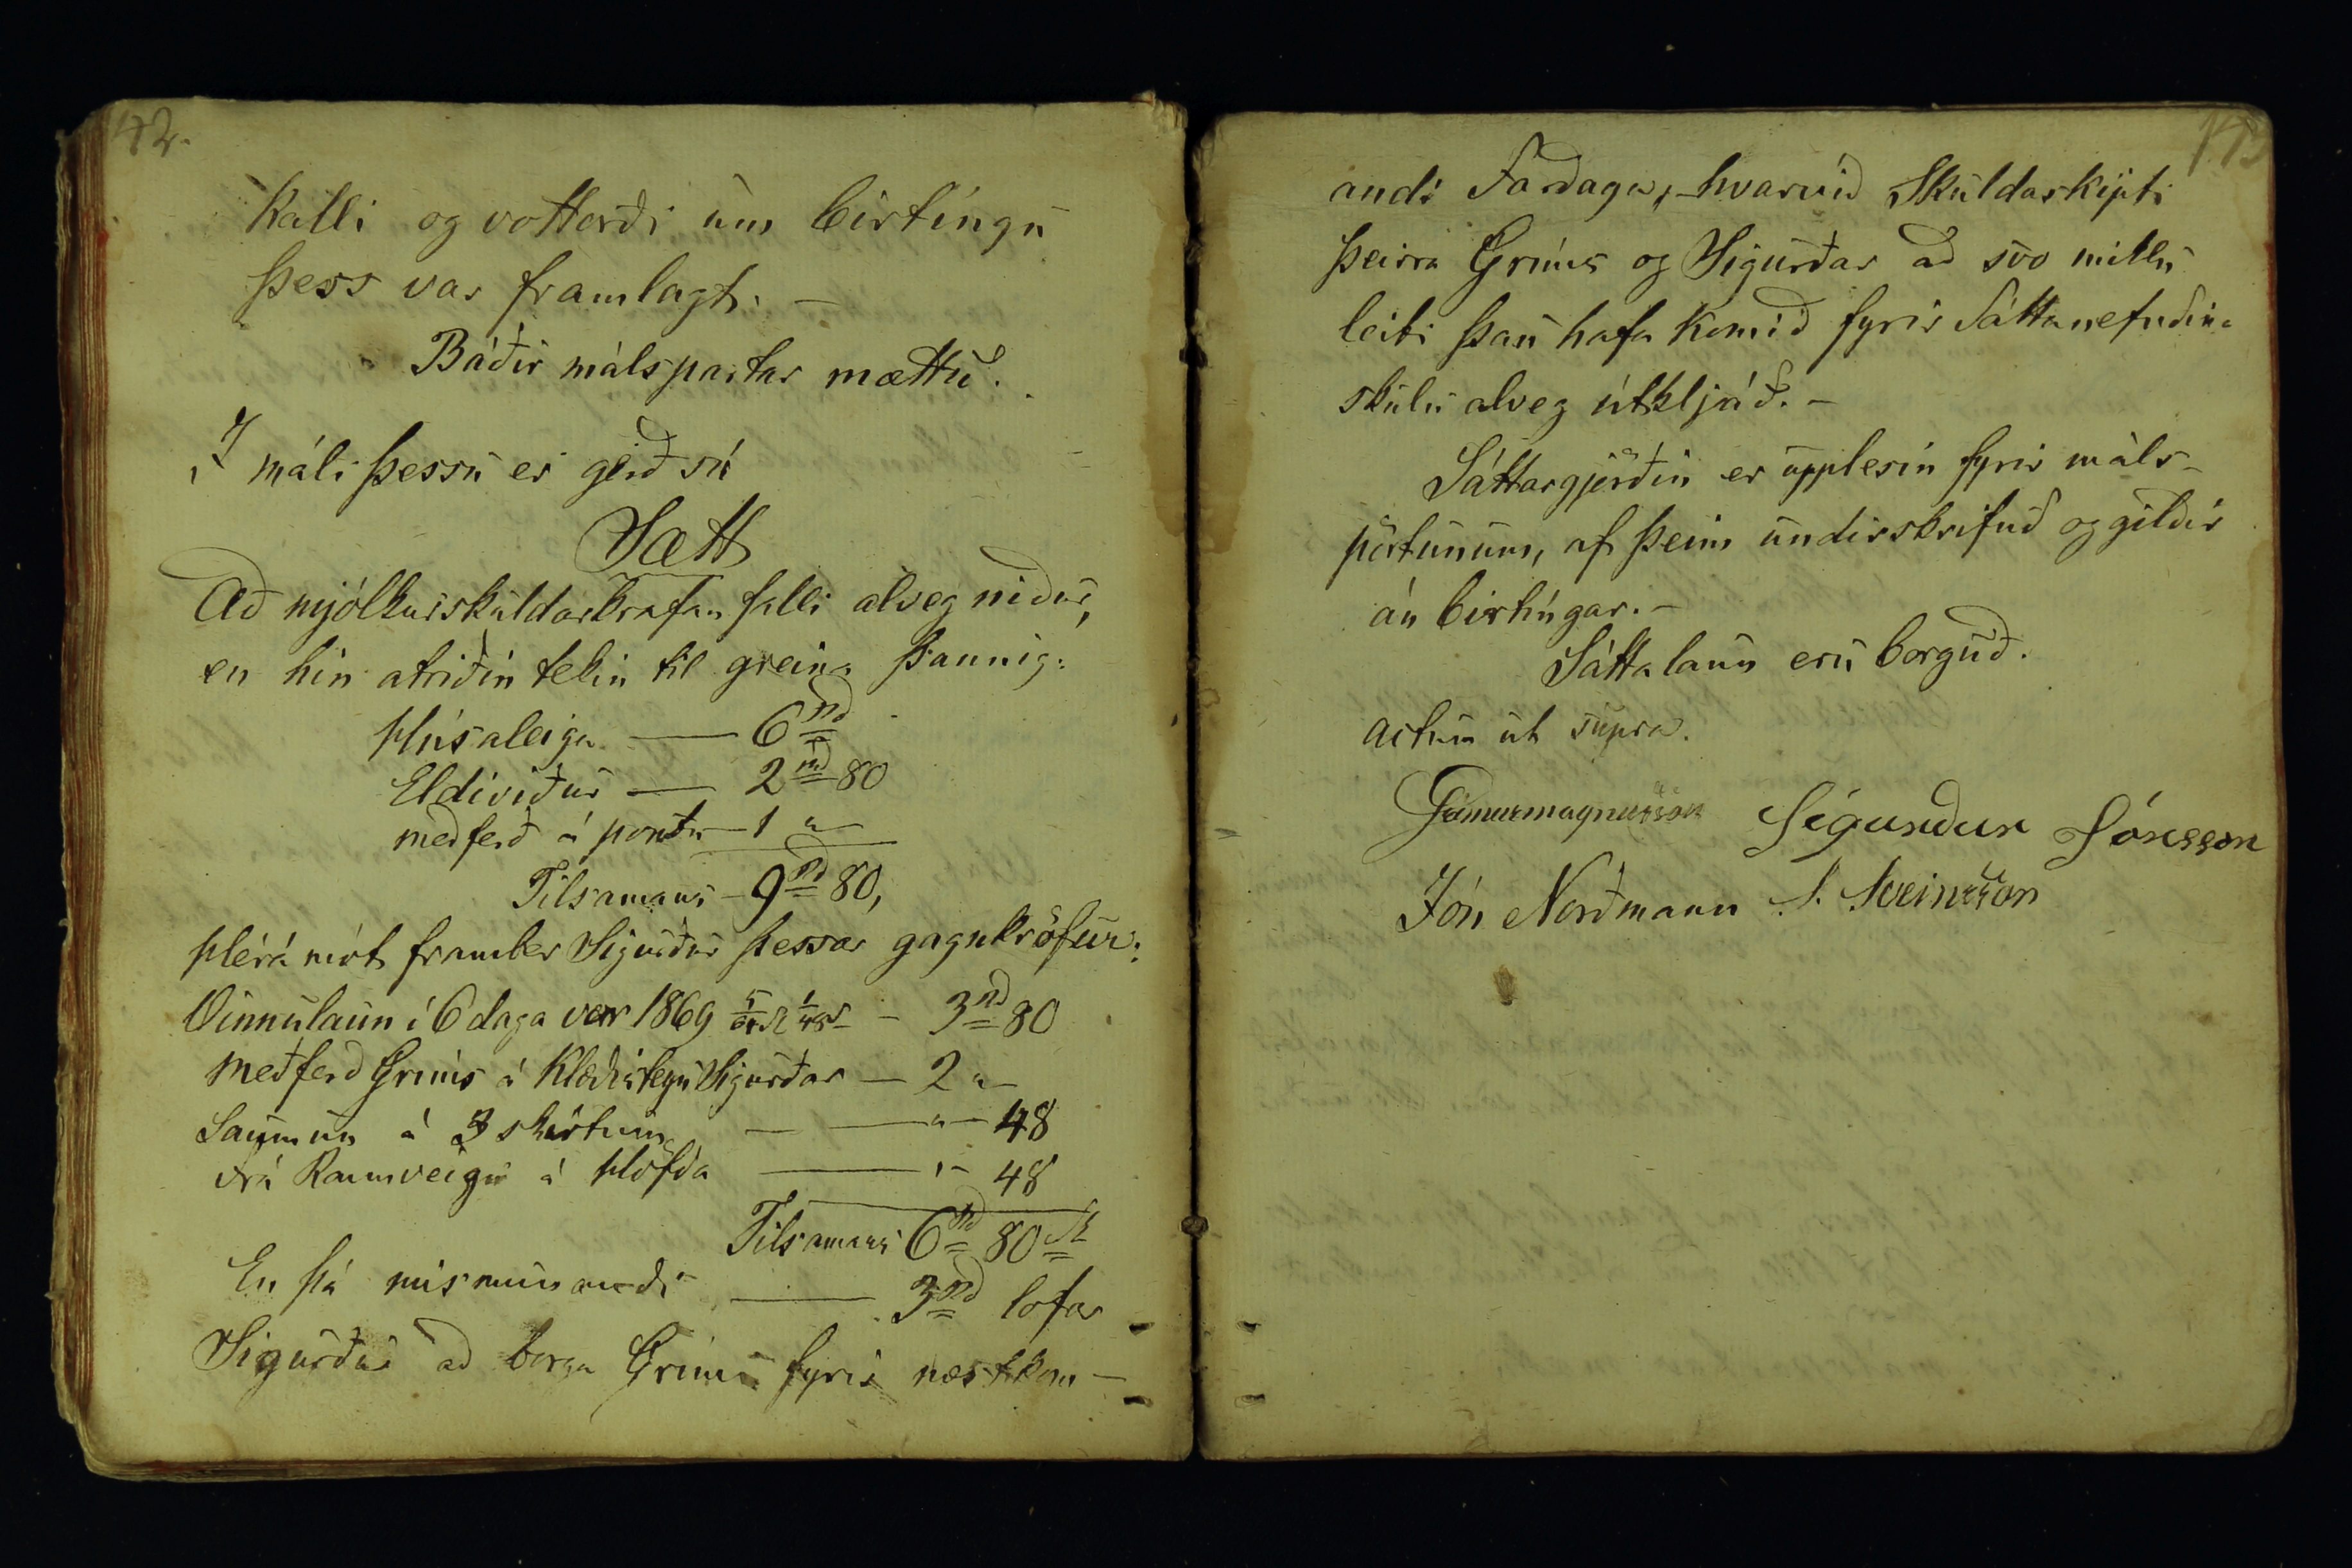 42.
kalli og vottorði um birtíngu
þess var framlagt. —
Báðir málspartar mættu.
Í máli þessu er gerð sú
Sætt
Að mjólkurskuldarkrafan falli alveg niður,
en hin atriðin tekin til greina þannig:
Húsaleiga — 6 rd
Eldiviður — 2 rd 80
meðferð á — 1 "
Tilsamans — 9 rd 80,
Hérá mót framber Sigurður þessar gagnkröfur:
Vinnulaun í 6 daga vor 1869 — 3 rd 80
Meðferð Gríms á Sigurðar — 2 "
Saumun á 3 skirtum — — " — 48
Frá Rannveigu á Höfða — " — 48
Tilsamans 6 rd 80 sk
En þá mismunandi — 3 rd lofar
Sigurður að borga Grími fyrir næstkom-
143
andi Fardaga, hvarvið Skuldaskipti
þeirra Gríms og Sigurðar að svo miklu
leiti þau hafa komið fyrir Sáttanefndina
skulu alveg útkljáð. —
Sáttargjörðin er upplesin fyrir máls-
pörtunum, af þeim undirskrifuð og gildir
án birtíngar. —
Sáttalaun eru borguð.
Actum ut supra.
Grímurmagnusson Sigurdur Jónsson
Jón Norðmann S. Sveinsson